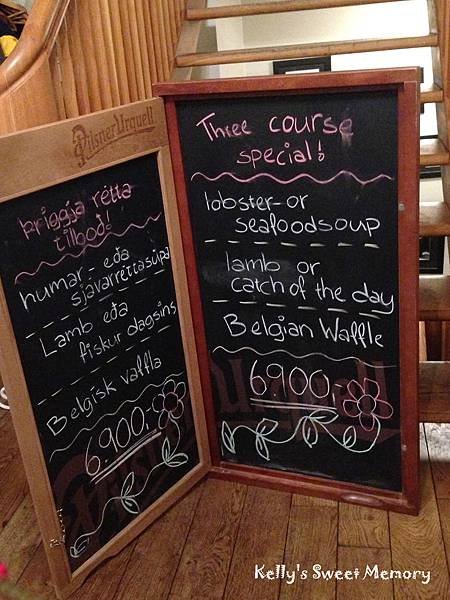 Pilsner Urquell
þriggja rétta
tilboð!
humar- eða
sjávarréttasúpa
Lamb eða
fiskur dagsins
Belgísk vaffla
6.900,-
Three course
special!
lobster-or
seafoodsoup
lamb or
catch of the day
Belgian Waffle
6900,-
Kelly's Sweet Memory